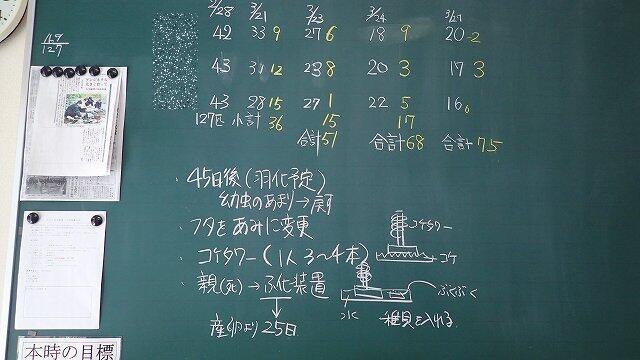 2/28 3/21 3/23 3/24 3/27
42 33 9 27 6 18 9 20 2
43 31 12 23 8 20 3 17 3
43 28 15 27 1 22 5 16 0
127匹 小計 36 15 17
合計51 合計68 合計75
・45日後(羽化予定)
幼虫のあまり→
・フタをあみに変更
・コケタワー(1人3〜4本)
・親(死)→ふ化装置
産卵より25日
コケタワー
コケ
ぶくぶく
水
稚貝を入れる
本時の目標